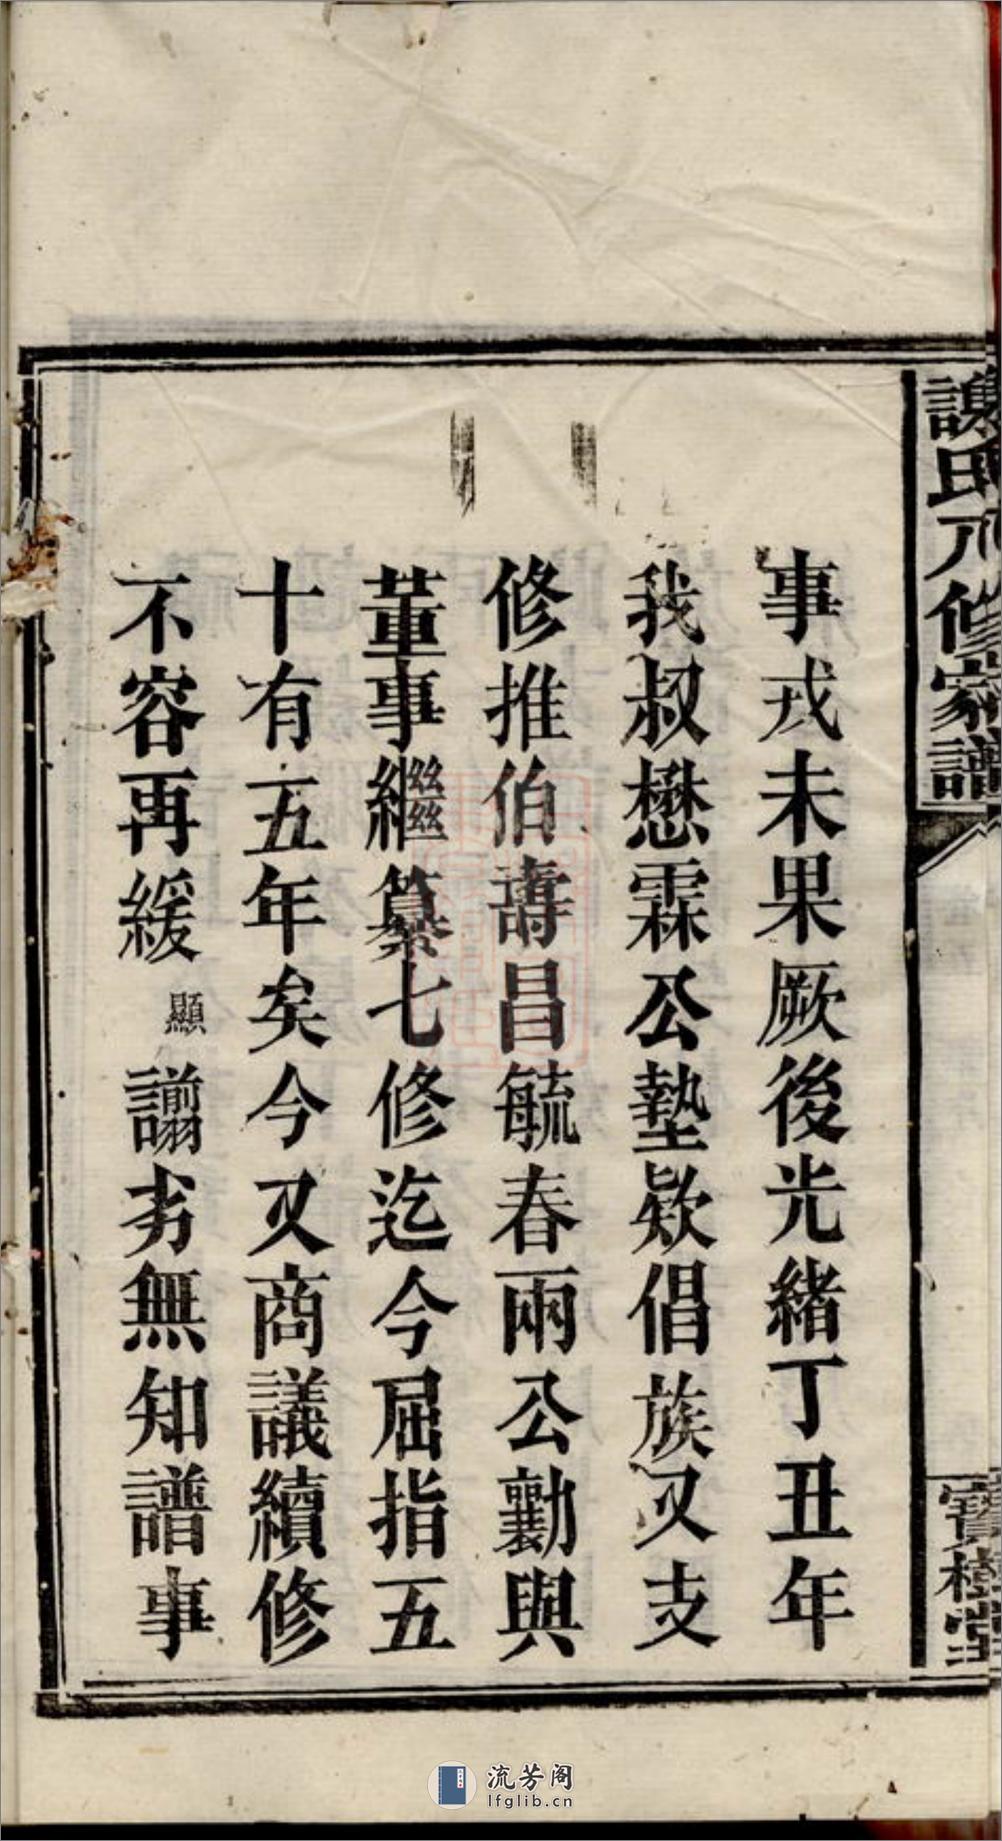 謝氏八修家譜
寶樹堂
事戎未果厥後光緒丁丑年
我叔懋霖公墊欵倡族又支
修推伯壽昌毓春兩公勷與
董事繼纂七修迄今屈指五
十有五年矣今又商議續修
不容再緩顯謭劣無知譜事
流芳阁
lfglib.cn